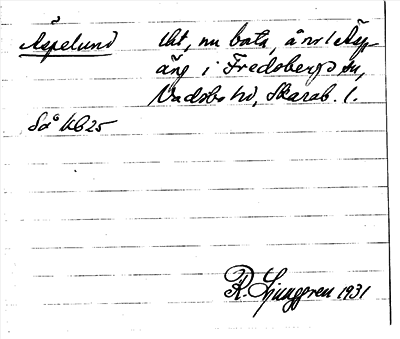 Äspelund tht, nu bara, å nr 1 Äsp-
äng i Fredsbergs sn,
Vadsbo hd, Skarab. l.
Så UB 25
R. Ljunggren 1931